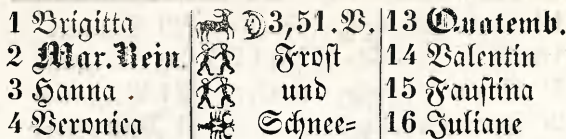 1 Brigitta 3,51. V. 13 Quatemb.
2 Mar. Rein. Frost 14 Valentin
3 Hanna . und 15 Faustina
4 Veronica Schnee= 16 Juliane